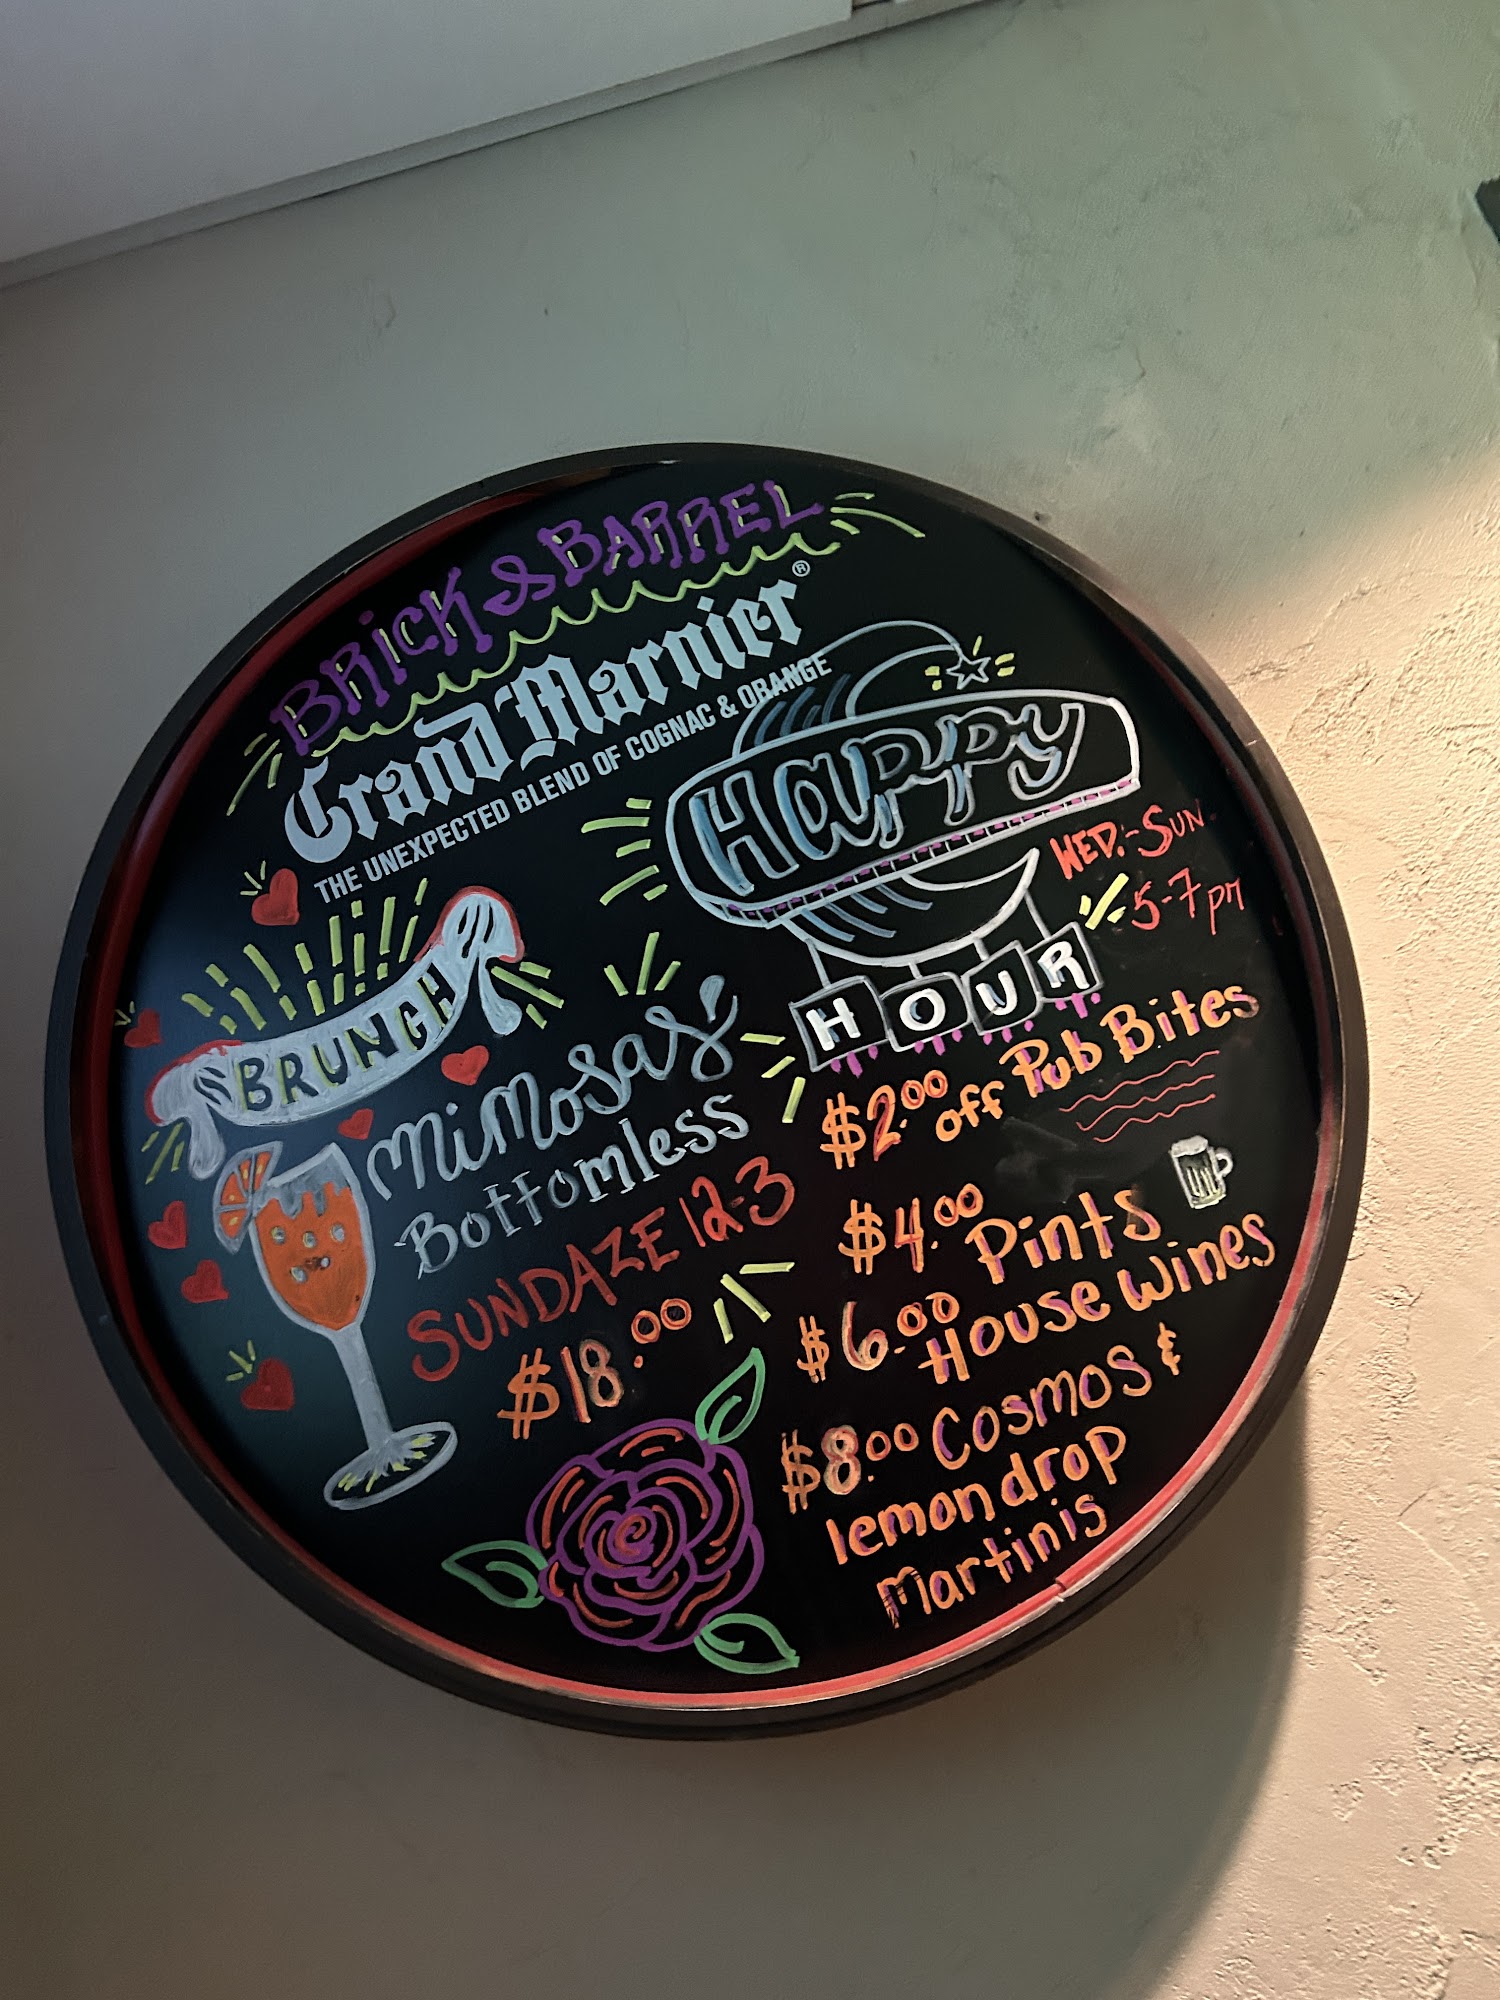 BRICK & BARREL
Grand Marnier®
THE UNEXPECTED BLEND OF COGNAC & ORANGE
BRUNCH
Mimosas
Bottomless
SUNDAZE 12-3
$18.00
Happy
HOUR
WED.-SUN.
5-7 pm
$2.00 off Pub Bites
$4.00 Pints
$6.00 House Wines
$8.00 Cosmos &
lemon drop
Martinis